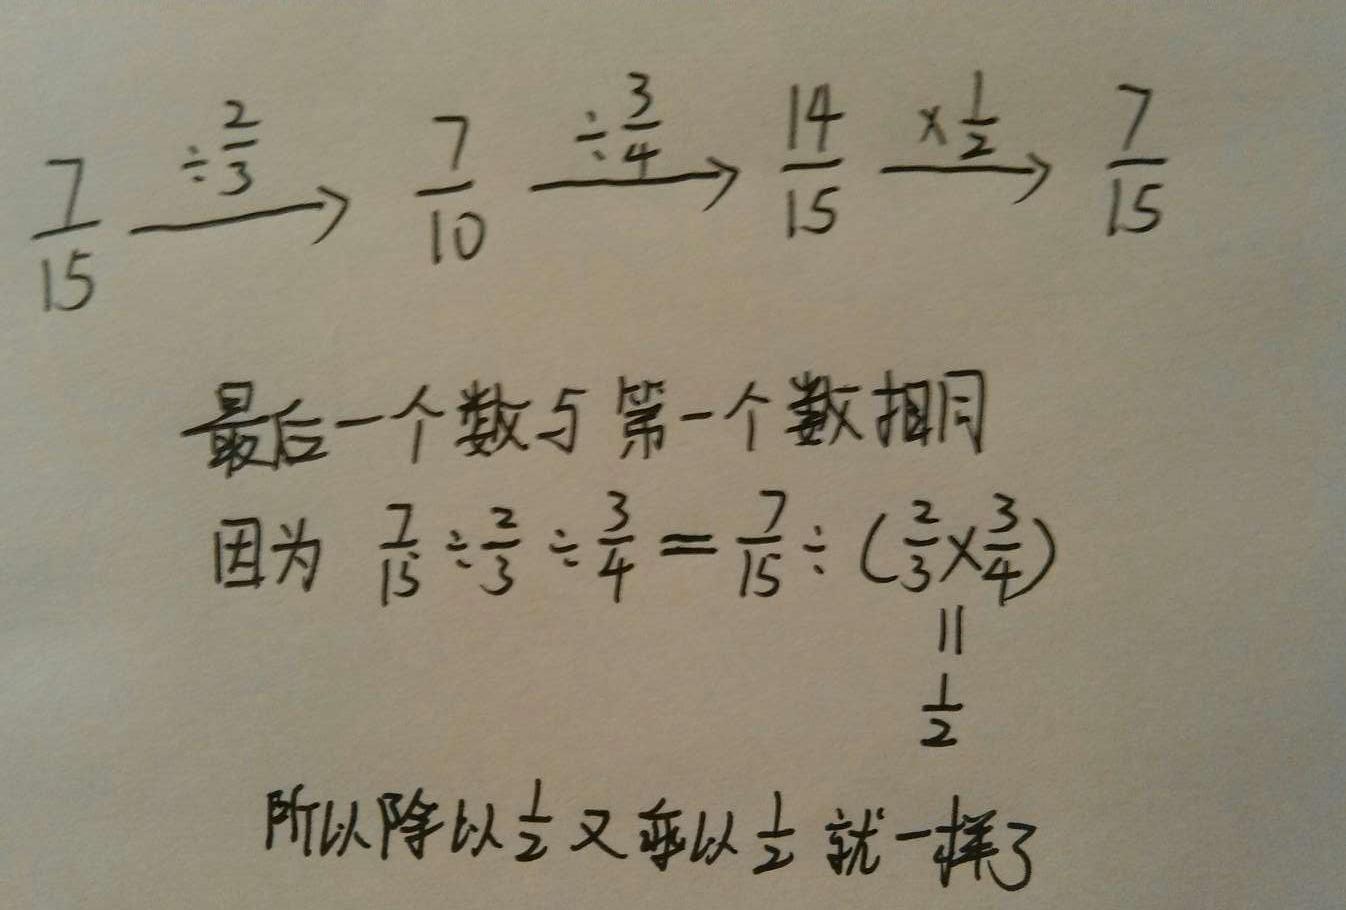 7/15 ÷2/3→ 7/10 ÷3/4→ 14/15 ×1/2→ 7/15
最后一个数与第一个数相同
因为 7/15÷2/3÷3/4=7/15÷(2/3×3/4)
=
1/2
所以除以1/2又乘以1/2就一样了